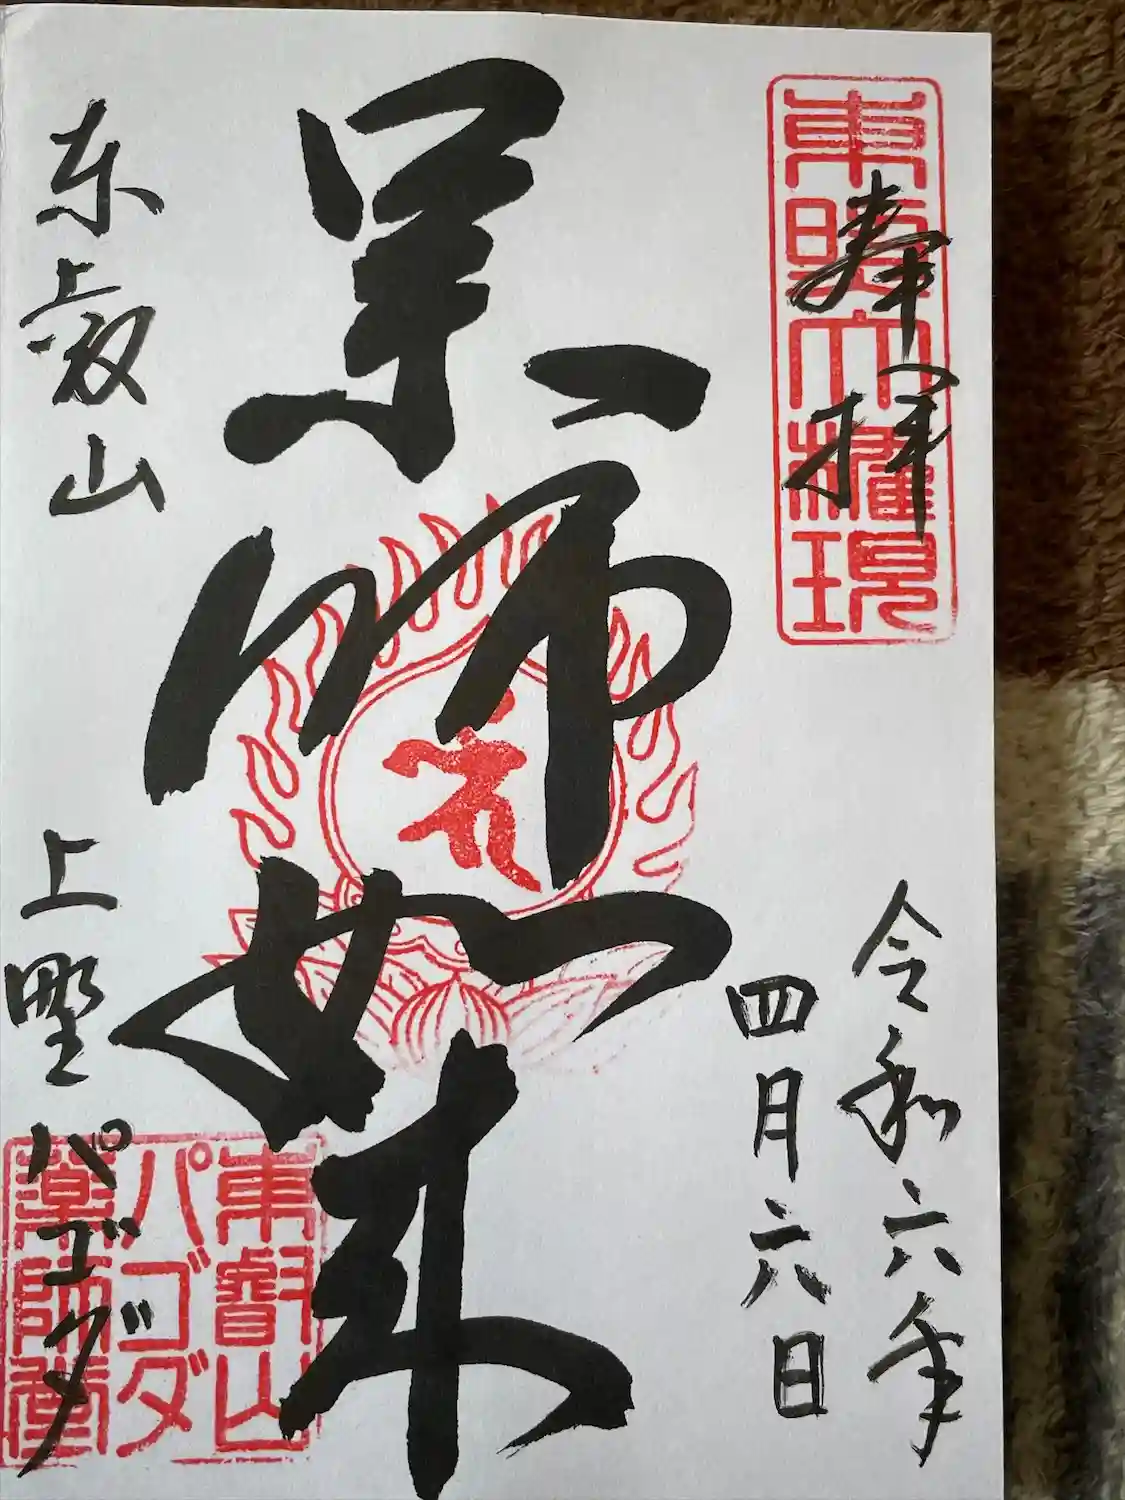 東照大権現
奉拝
令和六年
四月六日
薬師如来
東叡山
上野パゴダ
東叡山
パゴダ
薬師堂